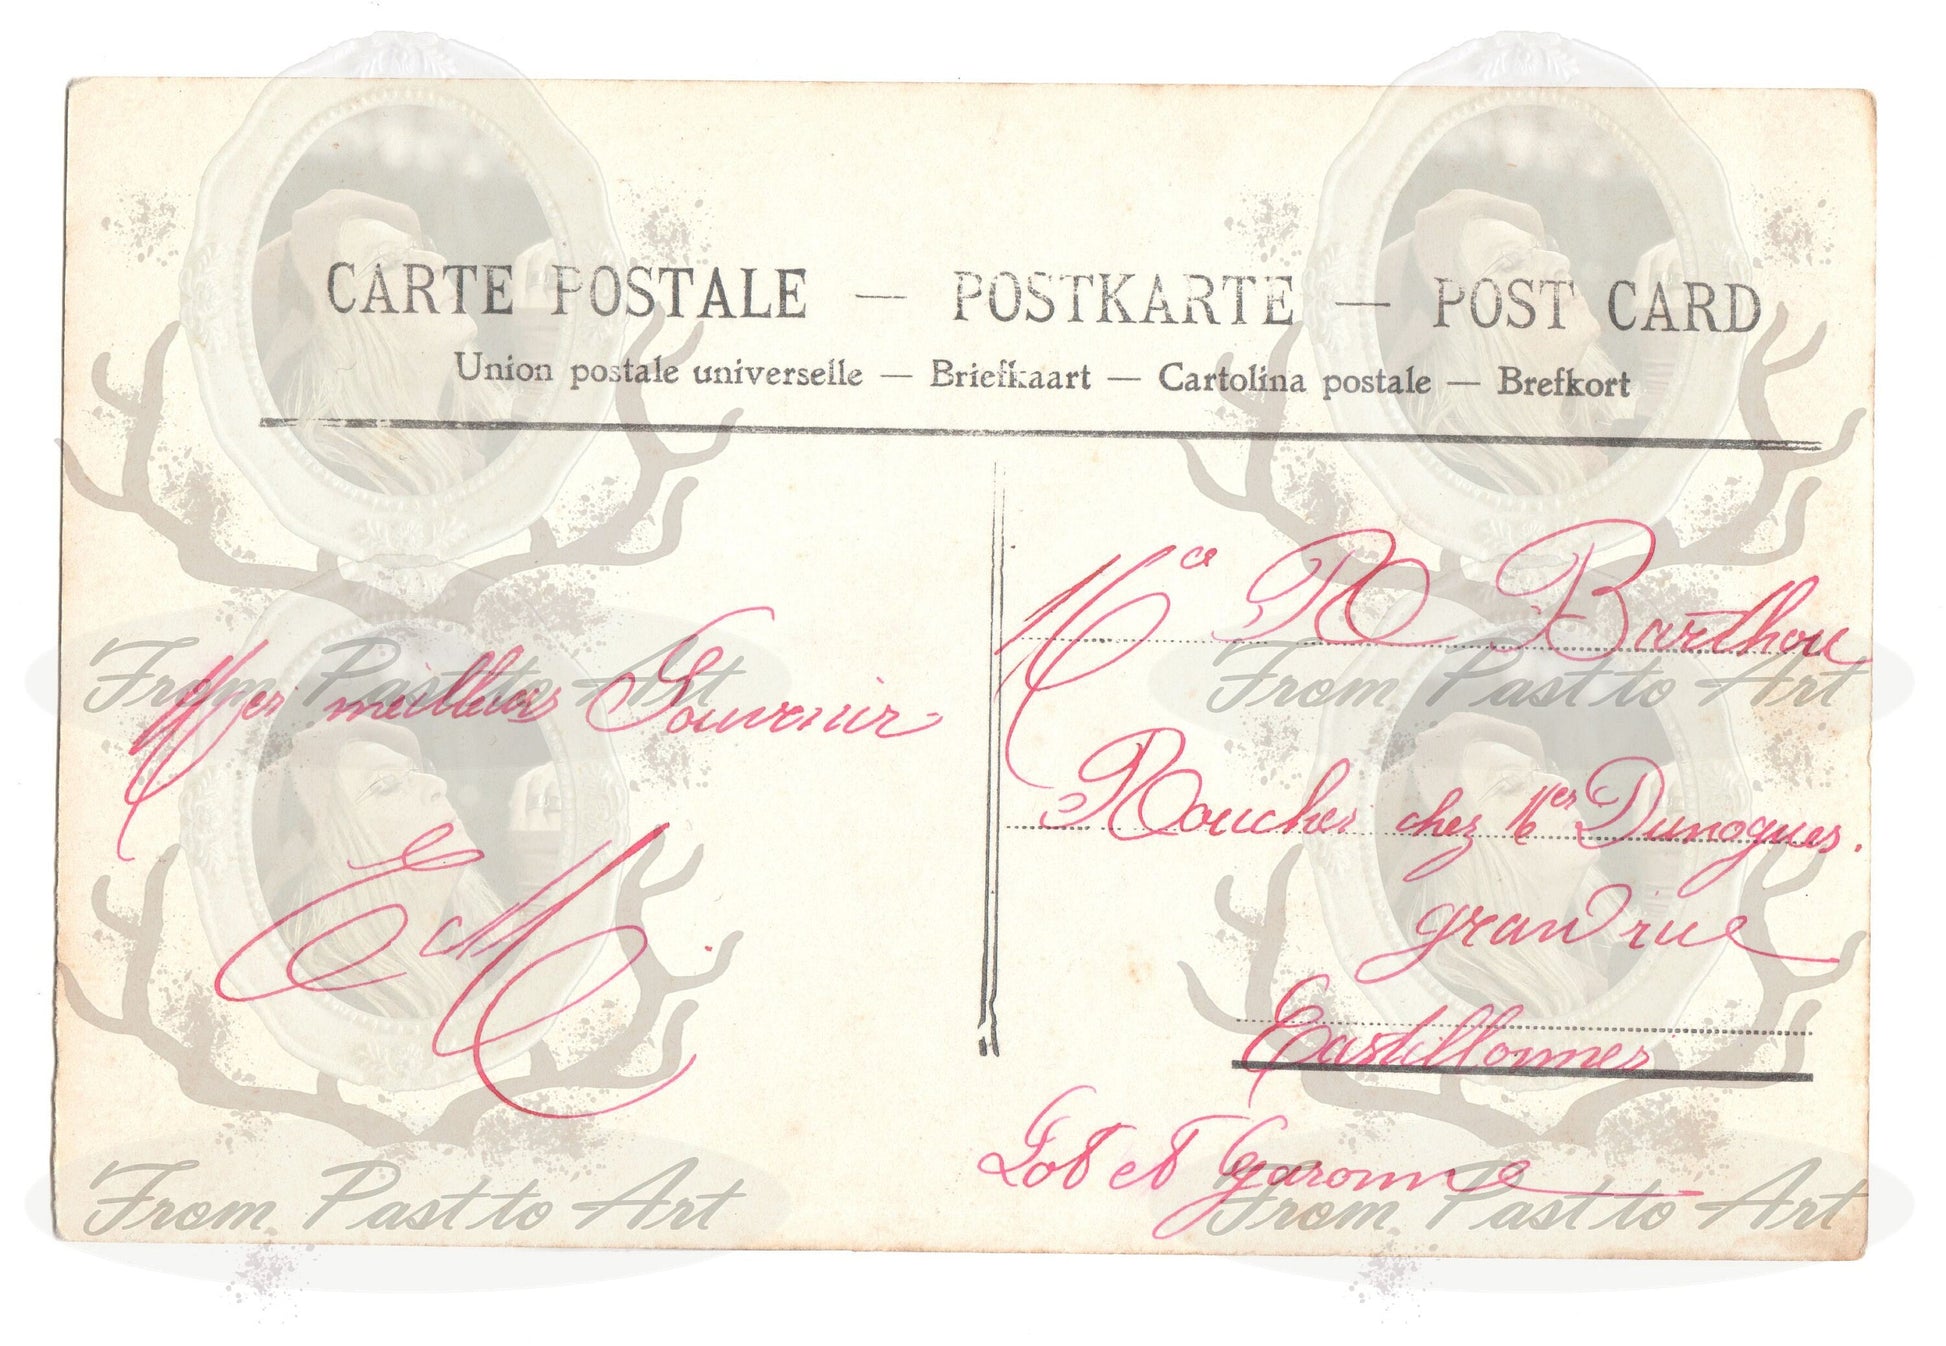 CARTE POSTALE — POSTKARTE — POST CARD
Union postale universelle — Briefkaart — Cartolina postale — Brefkort
Mes meilleurs Souvenir
R Barthou
Rouches chez Dunogues.
grand rue
Castillonnes
Lot et Garonne
From Past to Art
From Past to Art
From Past to Art
From Past to Art